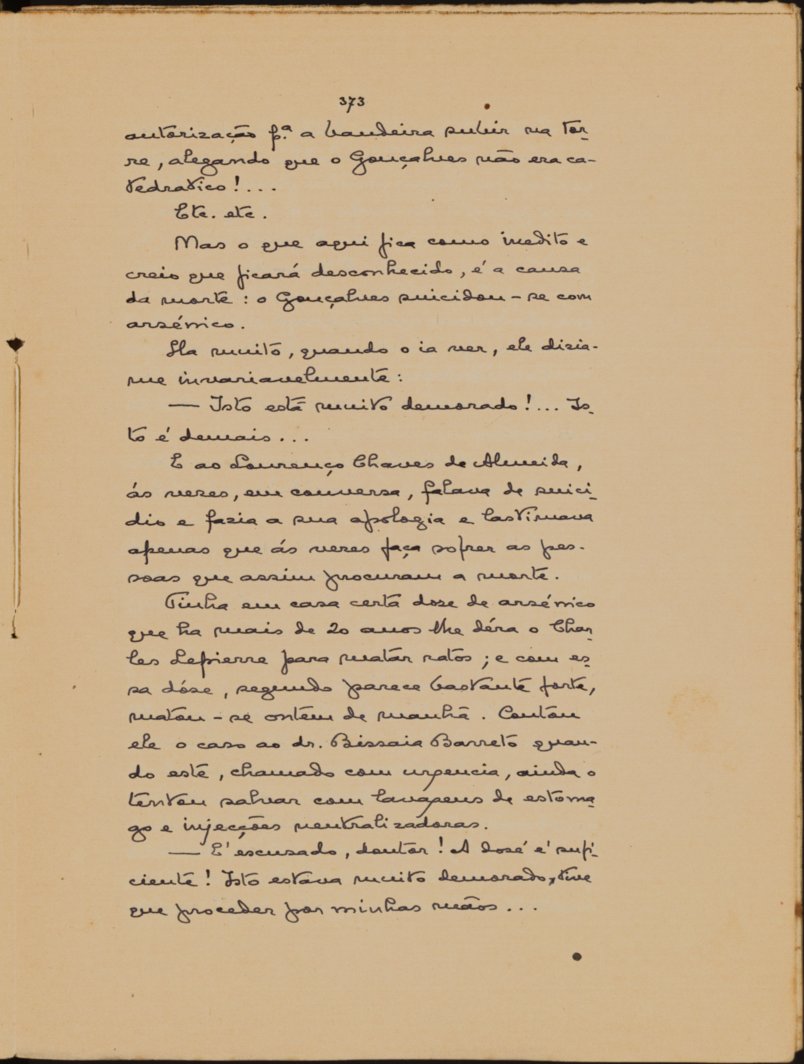 373
autorização p.ª a bandeira subir na Tor-
re, alegando que o Gonçalves não era ca-
tedratico!...
Etc. etc.
Mas o que aqui fica como inedito e
creio que ficará desconhecido, é a causa
da morte: o Gonçalves suicidou-se com
arsénico.
Ha muito, quando o ia ver, ele dizia-
me invariavelmente:
— Isto está muito demorado!... Is-
to é demais...
E ao Lourenço Chaves de Almeida,
ás vezes, em conversa, falava de suici-
dio e fazia a sua apologia e lastimava
apenas que ás vezes faça sofrer as pes-
soas que assim procuram a morte.
Tinha em casa certa dose de arsénico
que ha mais de 20 anos lhe déra o Char-
les Lepierre para matar ratos; e com es-
sa dóse, segundo parece bastante forte,
matou-se ontem de manhã. Contou
ele o caso ao dr. Bissaia Barreto quan-
do este, chamado com urgencia, ainda o
tentou salvar com lavagens de estoma-
go e injecções neutralizadoras.
— E' escusado, doutor! A dose é sufi-
ciente! Isto estava muito demorado, tive
que proceder por minhas mãos...